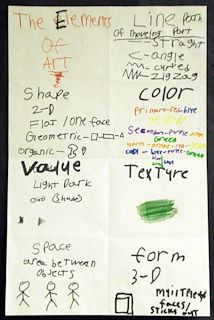 The Elements
Of
ART
Line Path
of moving Part
Straght
angle
curves
zigzag
Shape
2-D
Flat / one face
Geometric
organic
Color
primary-red blue
yellow
green
warm-orange-red-yellow
cool - blue-purple-green
Value
Light Dark
Texture
Space
area between
objects
form
3-D
multiple
faces/
sticks out